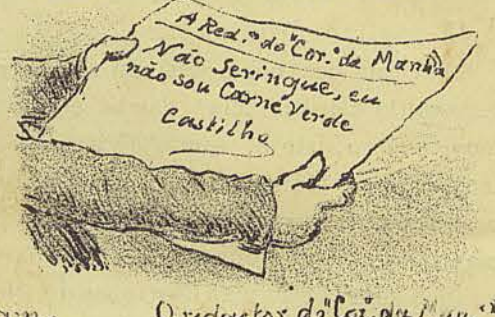 A Red.ᵃᵒ do "Cor.ᵒ da Manhã"
Não Seringue, eu
não sou Carne Verde
Castilho
O redactor do "Cor. da Man.